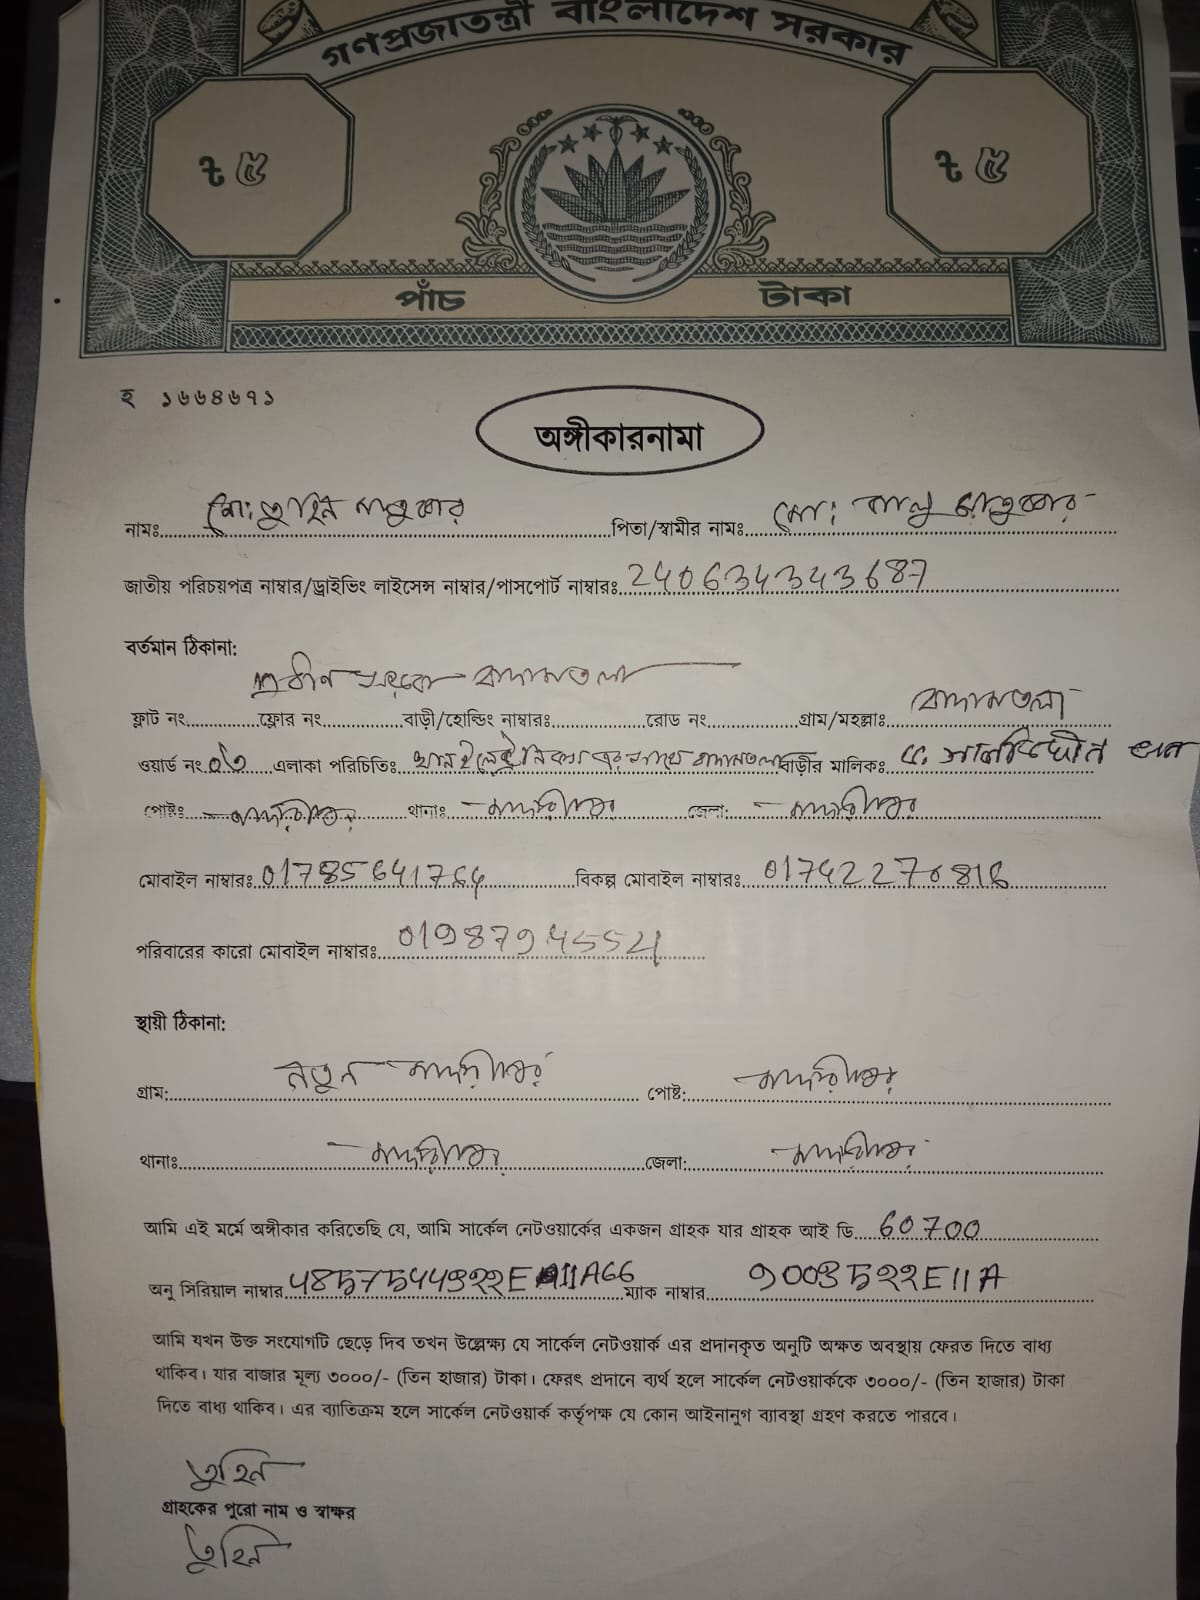 গণপ্রজাতন্ত্রী বাংলাদেশ সরকার
৳ ৫ ৳ ৫
পাঁচ টাকা
হ ১৬৬৪৬৭১
অঙ্গীকারনামা
নামঃ মো: তুহিন মাতুব্বর পিতা/স্বামীর নামঃ মো: কালু মাতুব্বর
জাতীয় পরিচয়পত্র নাম্বার/ড্রাইভিং লাইসেন্স নাম্বার/পাসপোর্ট নাম্বারঃ 240634343687
বর্তমান ঠিকানা:
বাদামতলা
ফ্লাট নং ফ্লোর নং বাড়ী/হোল্ডিং নাম্বারঃ রোড নং গ্রাম/মহল্লাঃ বাদামতলা
ওয়ার্ড নং এলাকা পরিচিতিঃ খান ইলেক্ট্রনিক্স এর সাথে বাদামতলা বাড়ীর মালিকঃ
পোষ্টঃ মাদারীপুর থানাঃ মাদারীপুর জেলা: মাদারীপুর
মোবাইল নাম্বারঃ 01785641764 বিকল্প মোবাইল নাম্বারঃ
পরিবারের কারো মোবাইল নাম্বারঃ
স্থায়ী ঠিকানা:
গ্রাম: নতুন মাদারীপুর পোষ্ট: মাদারীপুর
থানাঃ মাদারীপুর জেলা: মাদারীপুর
আমি এই মর্মে অঙ্গীকার করিতেছি যে, আমি সার্কেল নেটওয়ার্কের একজন গ্রাহক যার গ্রাহক আই ডি 60700
অনু সিরিয়াল নাম্বার ম্যাক নাম্বার
আমি যখন উক্ত সংযোগটি ছেড়ে দিব তখন উল্লেক্ষ্য যে সার্কেল নেটওয়ার্ক এর প্রদানকৃত অনুটি অক্ষত অবস্থায় ফেরত দিতে বাধ্য
থাকিব। যার বাজার মূল্য ৩০০০/- (তিন হাজার) টাকা। ফেরৎ প্রদানে ব্যর্থ হলে সার্কেল নেটওয়ার্ককে ৩০০০/- (তিন হাজার) টাকা
দিতে বাধ্য থাকিব। এর ব্যাতিক্রম হলে সার্কেল নেটওয়ার্ক কর্তৃপক্ষ যে কোন আইনানুগ ব্যাবস্থা গ্রহণ করতে পারবে।
তুহিন
গ্রাহকের পুরো নাম ও স্বাক্ষর
তুহিন